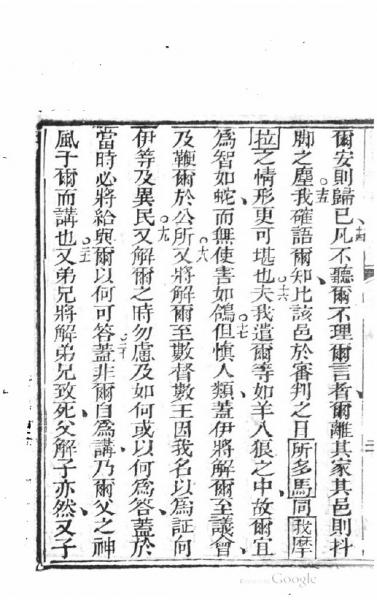 爾安則歸已凡不聽爾不理爾言者爾離其家其邑則抖
脚之塵我確語爾知比該邑於審判之日所多馬同我摩
拉之情形更可堪也夫我遣爾等如羊入狼之中故爾宜
爲智如蛇而無使害如鴿但愼人類蓋伊將解爾至議會
及鞭爾於公所又將解爾至數督數王因我名以爲証何
伊等及異民又解爾之時勿慮及如何或以何爲答蓋於
當時必將給與爾以何可答蓋非爾自爲講乃爾父之神
風于爾而講也又弟兄將解弟兄致死父解子亦然又子
十四
○十五
○十六
○十七
○十八
○十九
○二十
○二一
Google